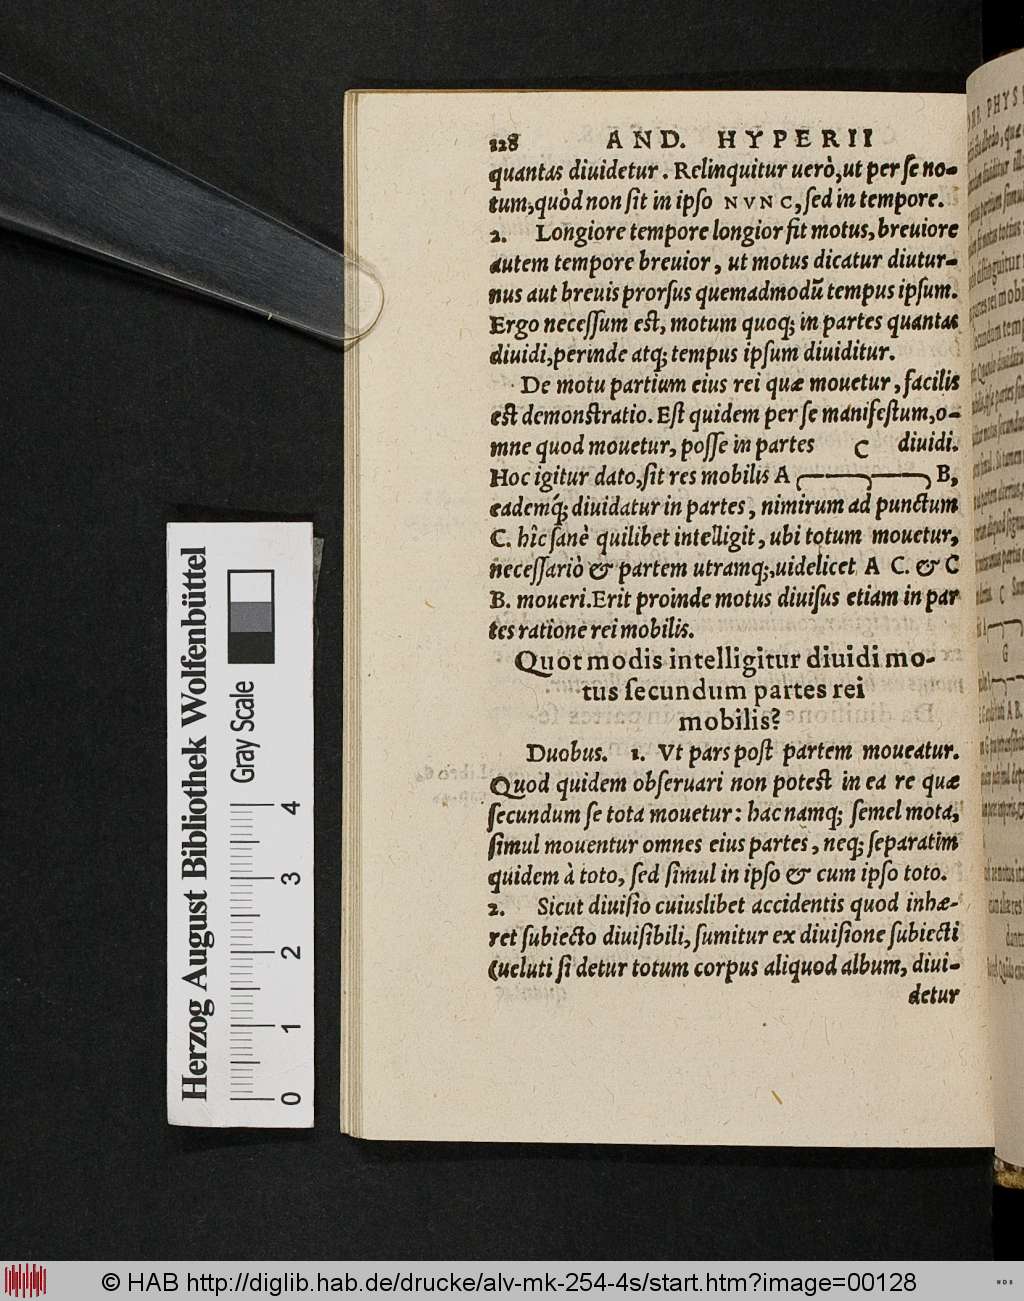 128 AND. HYPERII
quantas diuidetur. Relinquitur uerò, ut per se no-
tum, quòd non sit in ipso NVNC, sed in tempore.
2. Longiore tempore longior fit motus, breuiore
autem tempore breuior, ut motus dicatur diutur-
nus aut breuis prorsus quemadmodũ tempus ipsum.
Ergo necessum est, motum quoq; in partes quantas
diuidi, perinde atq; tempus ipsum diuiditur.
De motu partium eius rei quæ mouetur, facilis
est demonstratio. Est quidem per se manifestum, o-
mne quod mouetur, posse in partes C diuidi.
Hoc igitur dato, sit res mobilis A B,
eademq́; diuidatur in partes, nimirum ad punctum
C. hîc sanè quilibet intelligit, ubi totum mouetur,
necessariò & partem utramq;, uidelicet A C. & C
B. moueri. Erit proinde motus diuisus etiam in par
tes ratione rei mobilis.
Quot modis intelligitur diuidi mo-
tus secundum partes rei
mobilis?
Duobus. 1. Vt pars post partem moueatur.
Quod quidem obseruari non potest in ea re quæ
secundum se tota mouetur: hac namq; semel mota,
simul mouentur omnes eius partes, neq; separatim
quidem à toto, sed simul in ipso & cum ipso toto.
2. Sicut diuisio cuiuslibet accidentis quod inhæ-
ret subiecto diuisibili, sumitur ex diuisione subiecti
(ueluti si detur totum corpus aliquod album, diui-
detur
Herzog August Bibliothek Wolfenbüttel
Gray Scale
0 1 2 3 4
© HAB http://diglib.hab.de/drucke/alv-mk-254-4s/start.htm?image=00128